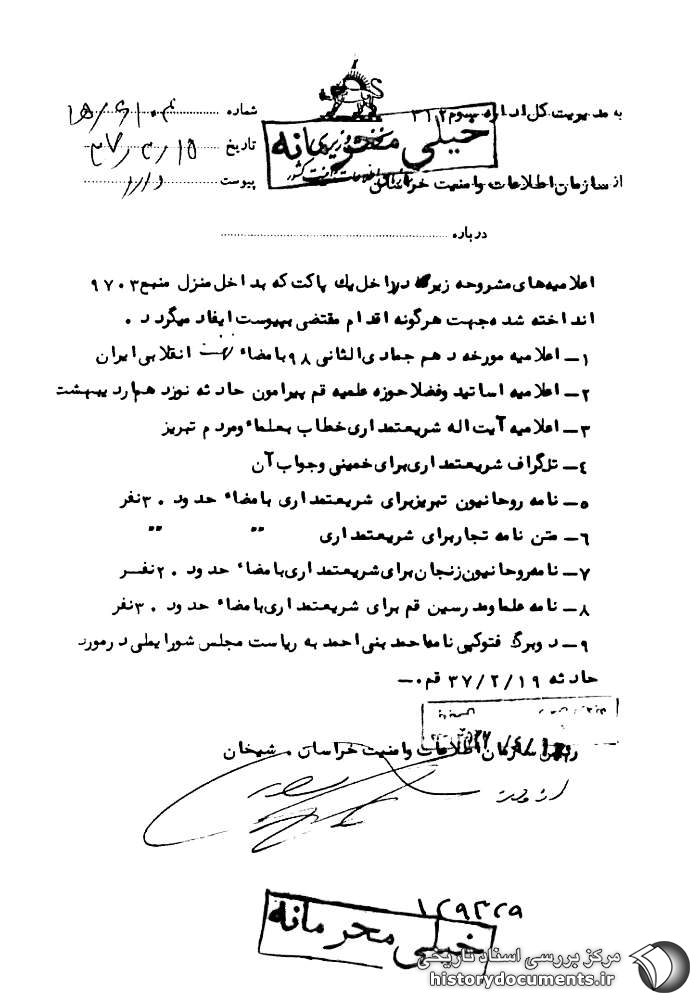 به مدیریت کل اداره سوم ۳۱۲
شماره
خیلی محرمانه
تاریخ ۳۷/۳/۱۵
از سازمان اطلاعات وامنیت خراسان
پیوست دارد
درباره
اعلامیه‌های مشروحه زیرکه در داخل یك پاکت که بداخل منزل منبع ۹۷۰۳
انداخته شده جهت هرگونه اقدام مقتضی بپیوست ایفاد میگردد .
۱ــ اعلامیه مورخه دهم جمادی الثانی ۹۸ بامضاء نهضت انقلابی ایران
۲ــ اعلامیه اساتید وفضلا حوزه علمیه قم پیرامون حادثه نوزدهم اردیبهشت
۳ــ اعلامیه آیت اله شریعتمداری خطاب بعلماء ومردم تبریز
۴ــ تلگراف شریعتمداری برای خمینی وجواب آن
۵ــ نامه روحانیون تبریز برای شریعتمداری بامضاء حدود ۳۰ نفر
۶ــ متن نامه تجار برای شریعتمداری " "
۷ــ نامه روحانیون زنجان برای شریعتمداری بامضاء حدود ۲۰ نفر
۸ــ نامه علما ومدرسین قم برای شریعتمداری بامضاء حدود ۳۰ نفر
۹ــ دوبرگ فتوکپی نامه احمد بنی احمد به ریاست مجلس شورایملی درمورد
حادثه ۳۷/۲/۱۹ قم .ــ
رئیس سازمان اطلاعات وامنیت خراسان . شیخان
از طرف
۱۲۹۳۲۹
خیلی محرمانه
مرکز بررسی اسناد تاریخی
historydocuments.ir